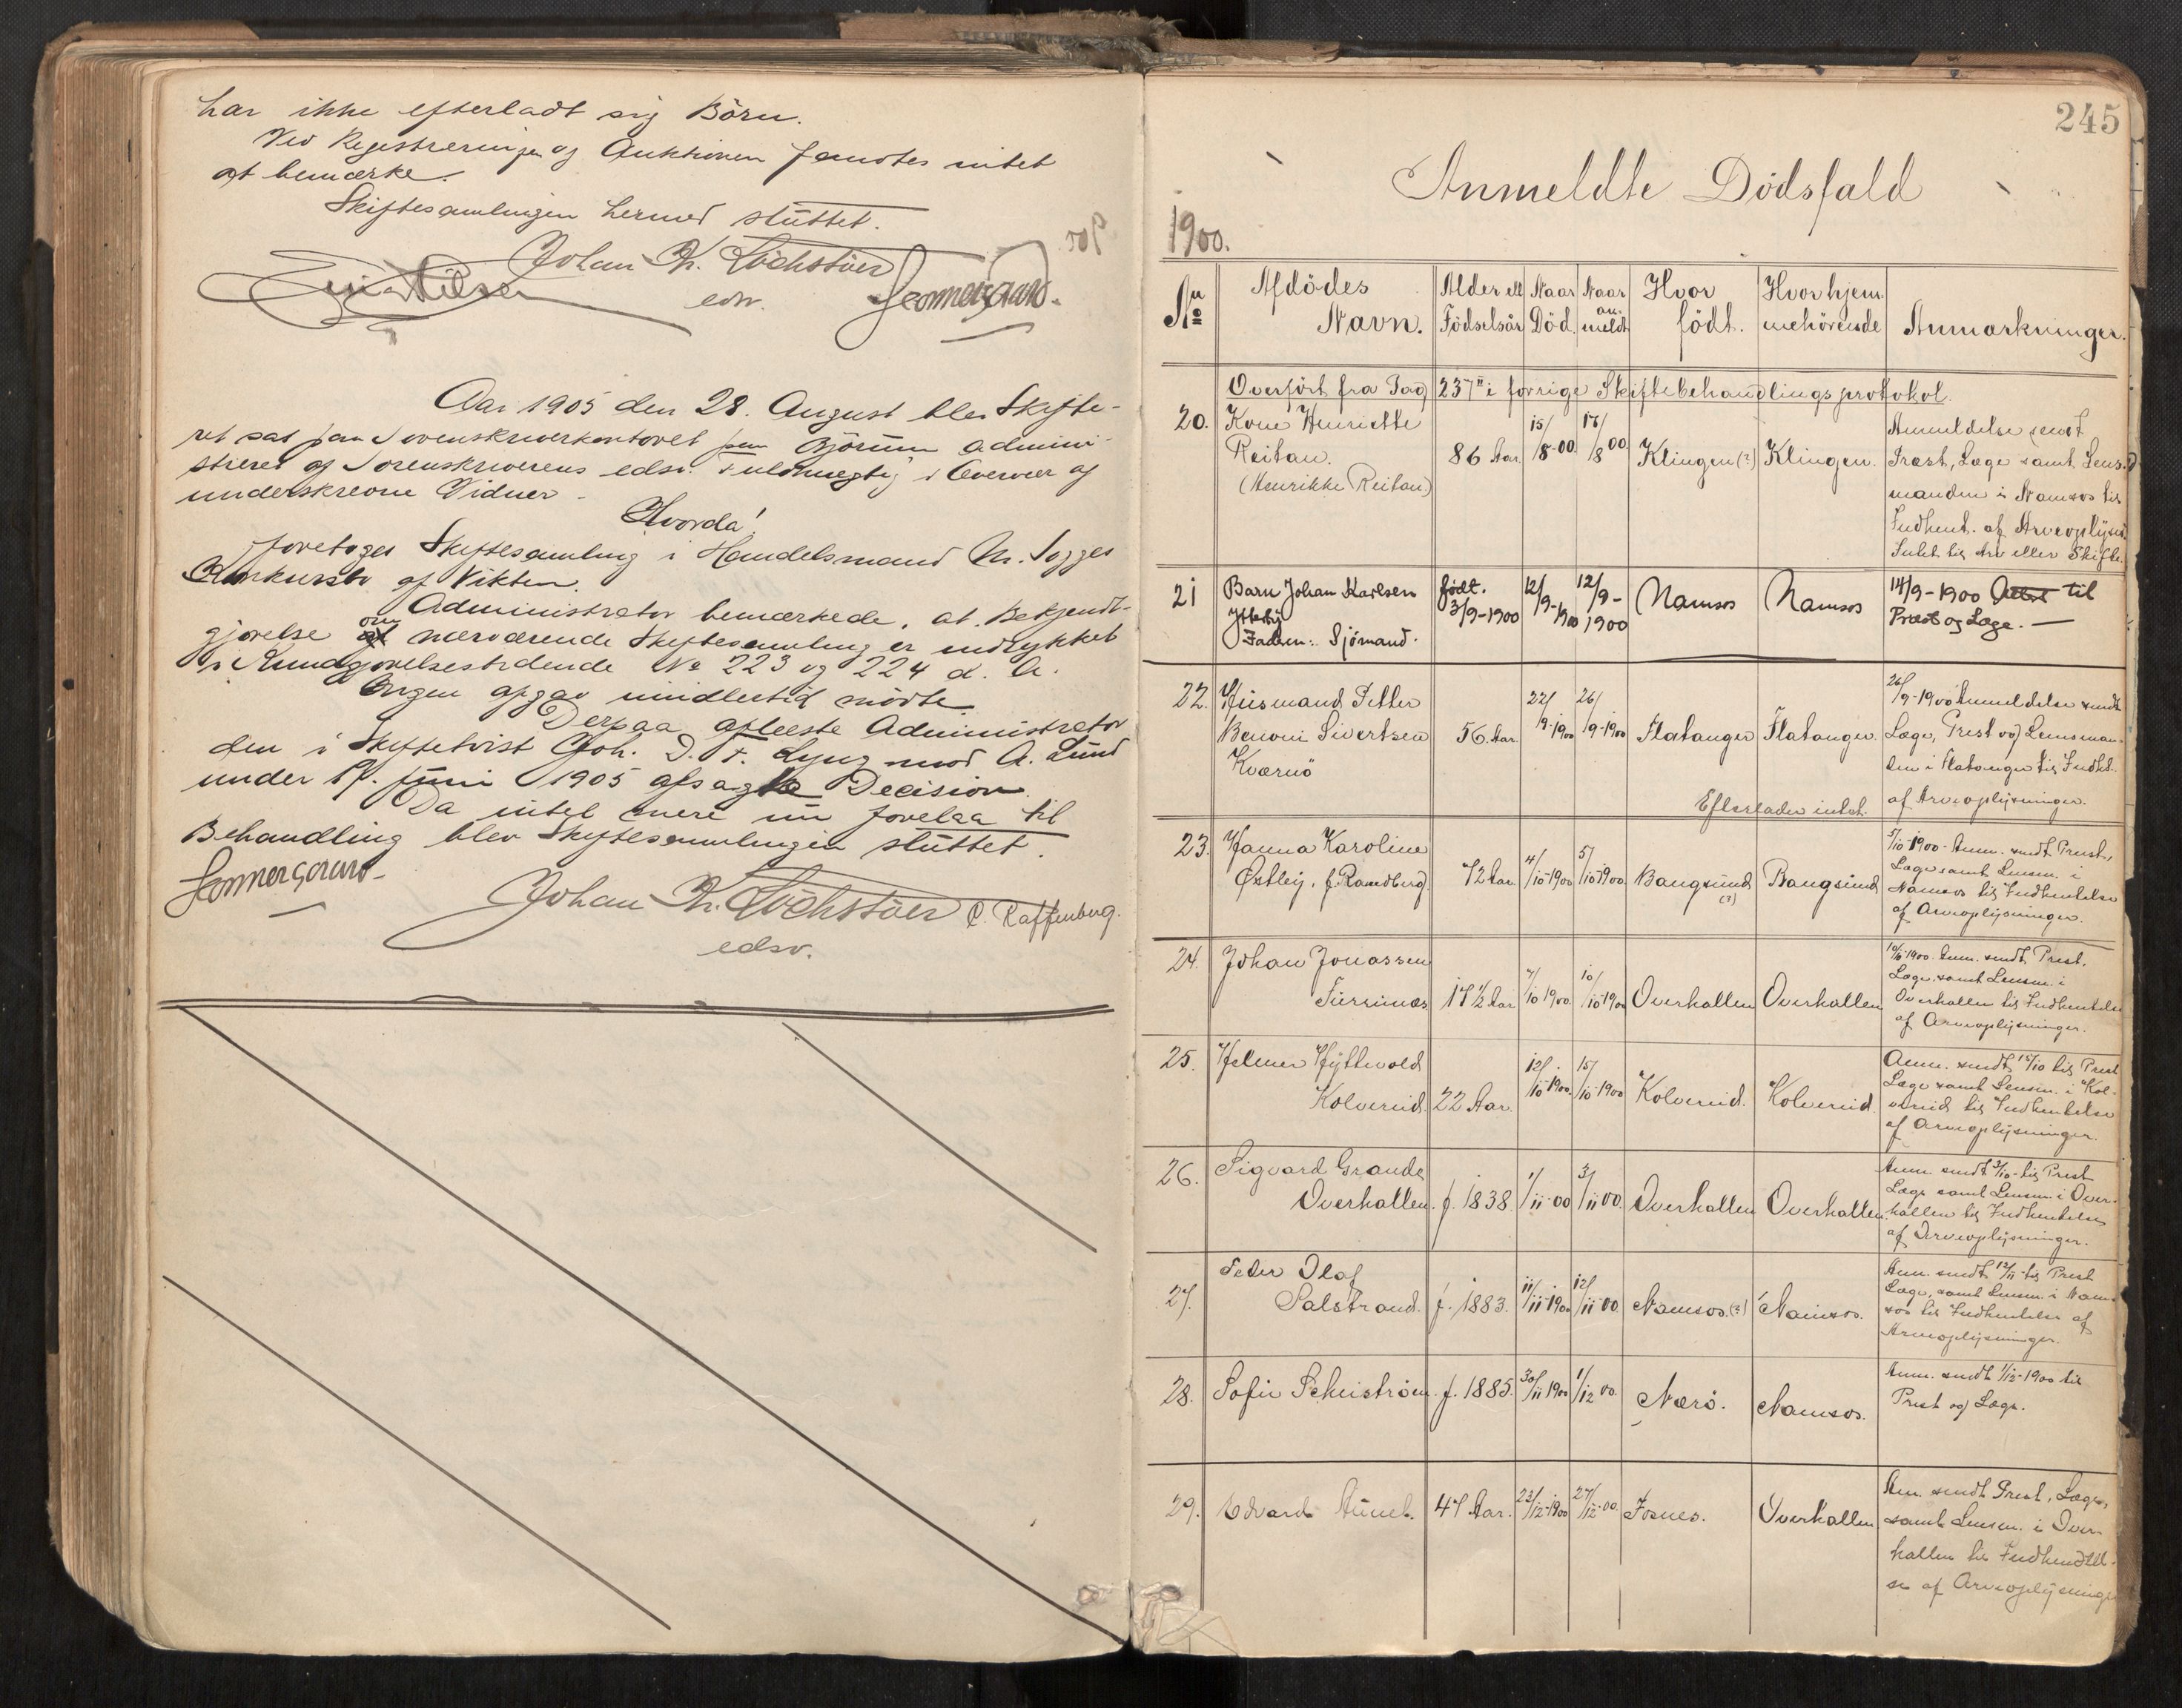 har ikke efterladt sig Börn.
Ved Registreringen og Auktionen fandtes intet
at bemærke.
Skiftesamlingen hermed slüttet.
Johan Kr. Löchstöer
edsv.
Aar 1905 den 28. August blev Skifte-
ret sat paa Sorenskriverkontoret paa Björum admini-
streret af Sorenskriverens edsv. Fuldmægtig i Overvær af
underskrevne Vidner.
Hvorda!
foretoges Skiftesamling i Handelsmand
Konkursbo af Vikten.
Administrator bemærkede, at Bekjendt-
gjörelse om nærværende Skiftesamling er indrykket
i Kundgjörelsestidende No 223 og 224 d. A.
Ingen opgav imidlertid mödte
Derpaa oplæste Administrator
den i Skiftetvist Joh. D. F. Lyng mod A. Lund
under 17. Juni 1905 afsagte Decision.
Da intet mere nu forelaa til
Behandling blev Skiftesamlingen slüttet.
Johan Kr. Löchstöer C. Raffenberg.
edsv.
245
Anmeldte Dödsfald
1900.
No Afdödes Navn. Alder ell Födselsår Naar Död. Naar anmeldt Hvor födt. Hvor hjemmehörende Anmærkninger.
Overfört fra Pag 237 II i forrige Skiftebehandlingsprotokol.
20. Kone Henriette Reitan. (Henrikke Reitan) 86 Aar 15/8-00 17/8 00 Klingen (?) Klingen. Anmeldelse sendt
Præst, Læge samt Lens-
manden i Namsos til
Indhent. af Arveoplysn.
Intet til Arv eller Skifte.
21 Barn Johan Karlsen Ytterby Faderen: Sjömand. födt. 3/9-1900 12/9-1900 12/9-1900 Namsos Namsos 14/9-1900 til
Præst og Læge. —
22. Husmand Petter Benoni Sivertsen Kværnö 56 Aar. 22/9-1900 26/9-1900 Flatanger Flatanger. 26/9-1900 Anmeldelse sendt
Læge, Prest og Lensman-
den i Flatanger til Indht.
af Arveoplysninger.
Efterlader intet.
23. Hanna Karoline Østby, f. Randberg. 72 Aar. 4/10-1900 5/10-1900 Bangsund (?) Bangsund 5/10-1900 Anm. sendt Prest,
Læge samt Lensm. i
Namsos til Indhentelse
af Arveoplysninger.
24. Johan Jonassen 17 1/2 Aar 7/10 1900. 10/10-1900 Overhallen Overhallen 10/10-1900. Anm. sendt Prest,
Læge, samt Lensm. i
Overhallen til Indhentelse
af Arveoplysninger.
25. Helmer Hyttevold Kolvereid. 22 Aar. 12/10-1900. 15/10-1900 Kolvereid. Kolvereid. Anm. sendt 15/10 til Prest
Læge samt Lensm. i Kol-
vereid til Indhentelse
af Arveoplysninger.
26. Sigvard Grande Overhallen. f. 1838. 1/11-00 3/11 00. Overhallen Overhallen. Anm. sendt 3/10- til Prest
Læge samt Lensm. i Over-
hallen til Indhentelse
af Arveoplysninger.
27. Peder Olaf Salstrand. f. 1883. 11/11-1900 12/11-00 Namsos. (?) Namsos. Anm. sendt 12/11- til Prest
Læge, samt Lensm. i Nam-
sos til Indhentelse af
Arveoplysninger.
28. Sofie f. 1885. 30/11 1900 1/12 00. Nærö. Namsos. Anm. sendt 1/12-1900 til
Prest og Læge.
29. Edvard Aünet. 47 Aar. 23/12-1900 27/12-00. Fosnes. Overhallen Anm. sendt Prest, Læge,
samt Lensm. i Over-
hallen til Indhendtel-
se af Arveoplysninge